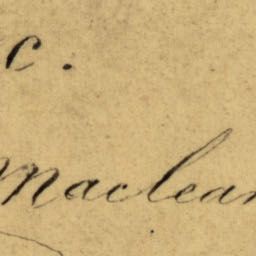 c.
Maclean